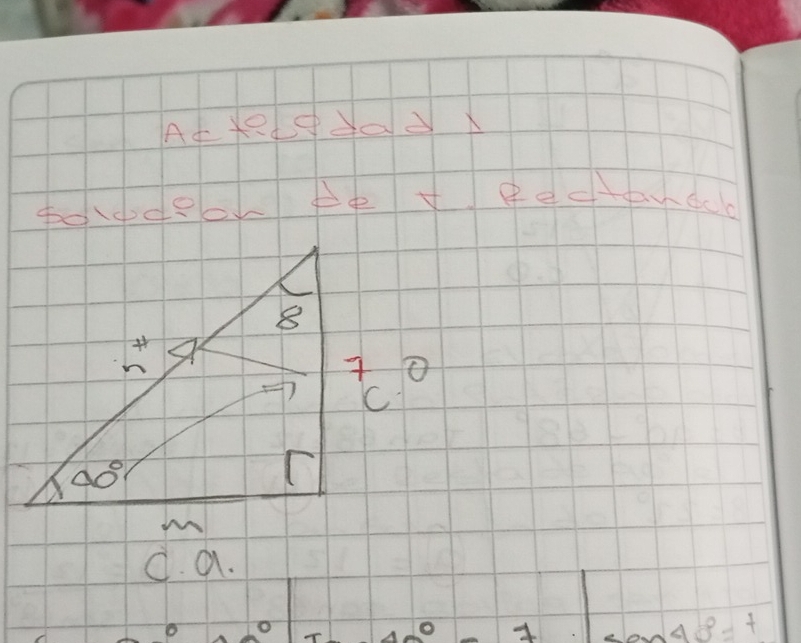 Actividad 1
Solución de t. Rectangulo
h
8
7
C. O
40°
m
C. a.
40° = 7
sen40=7